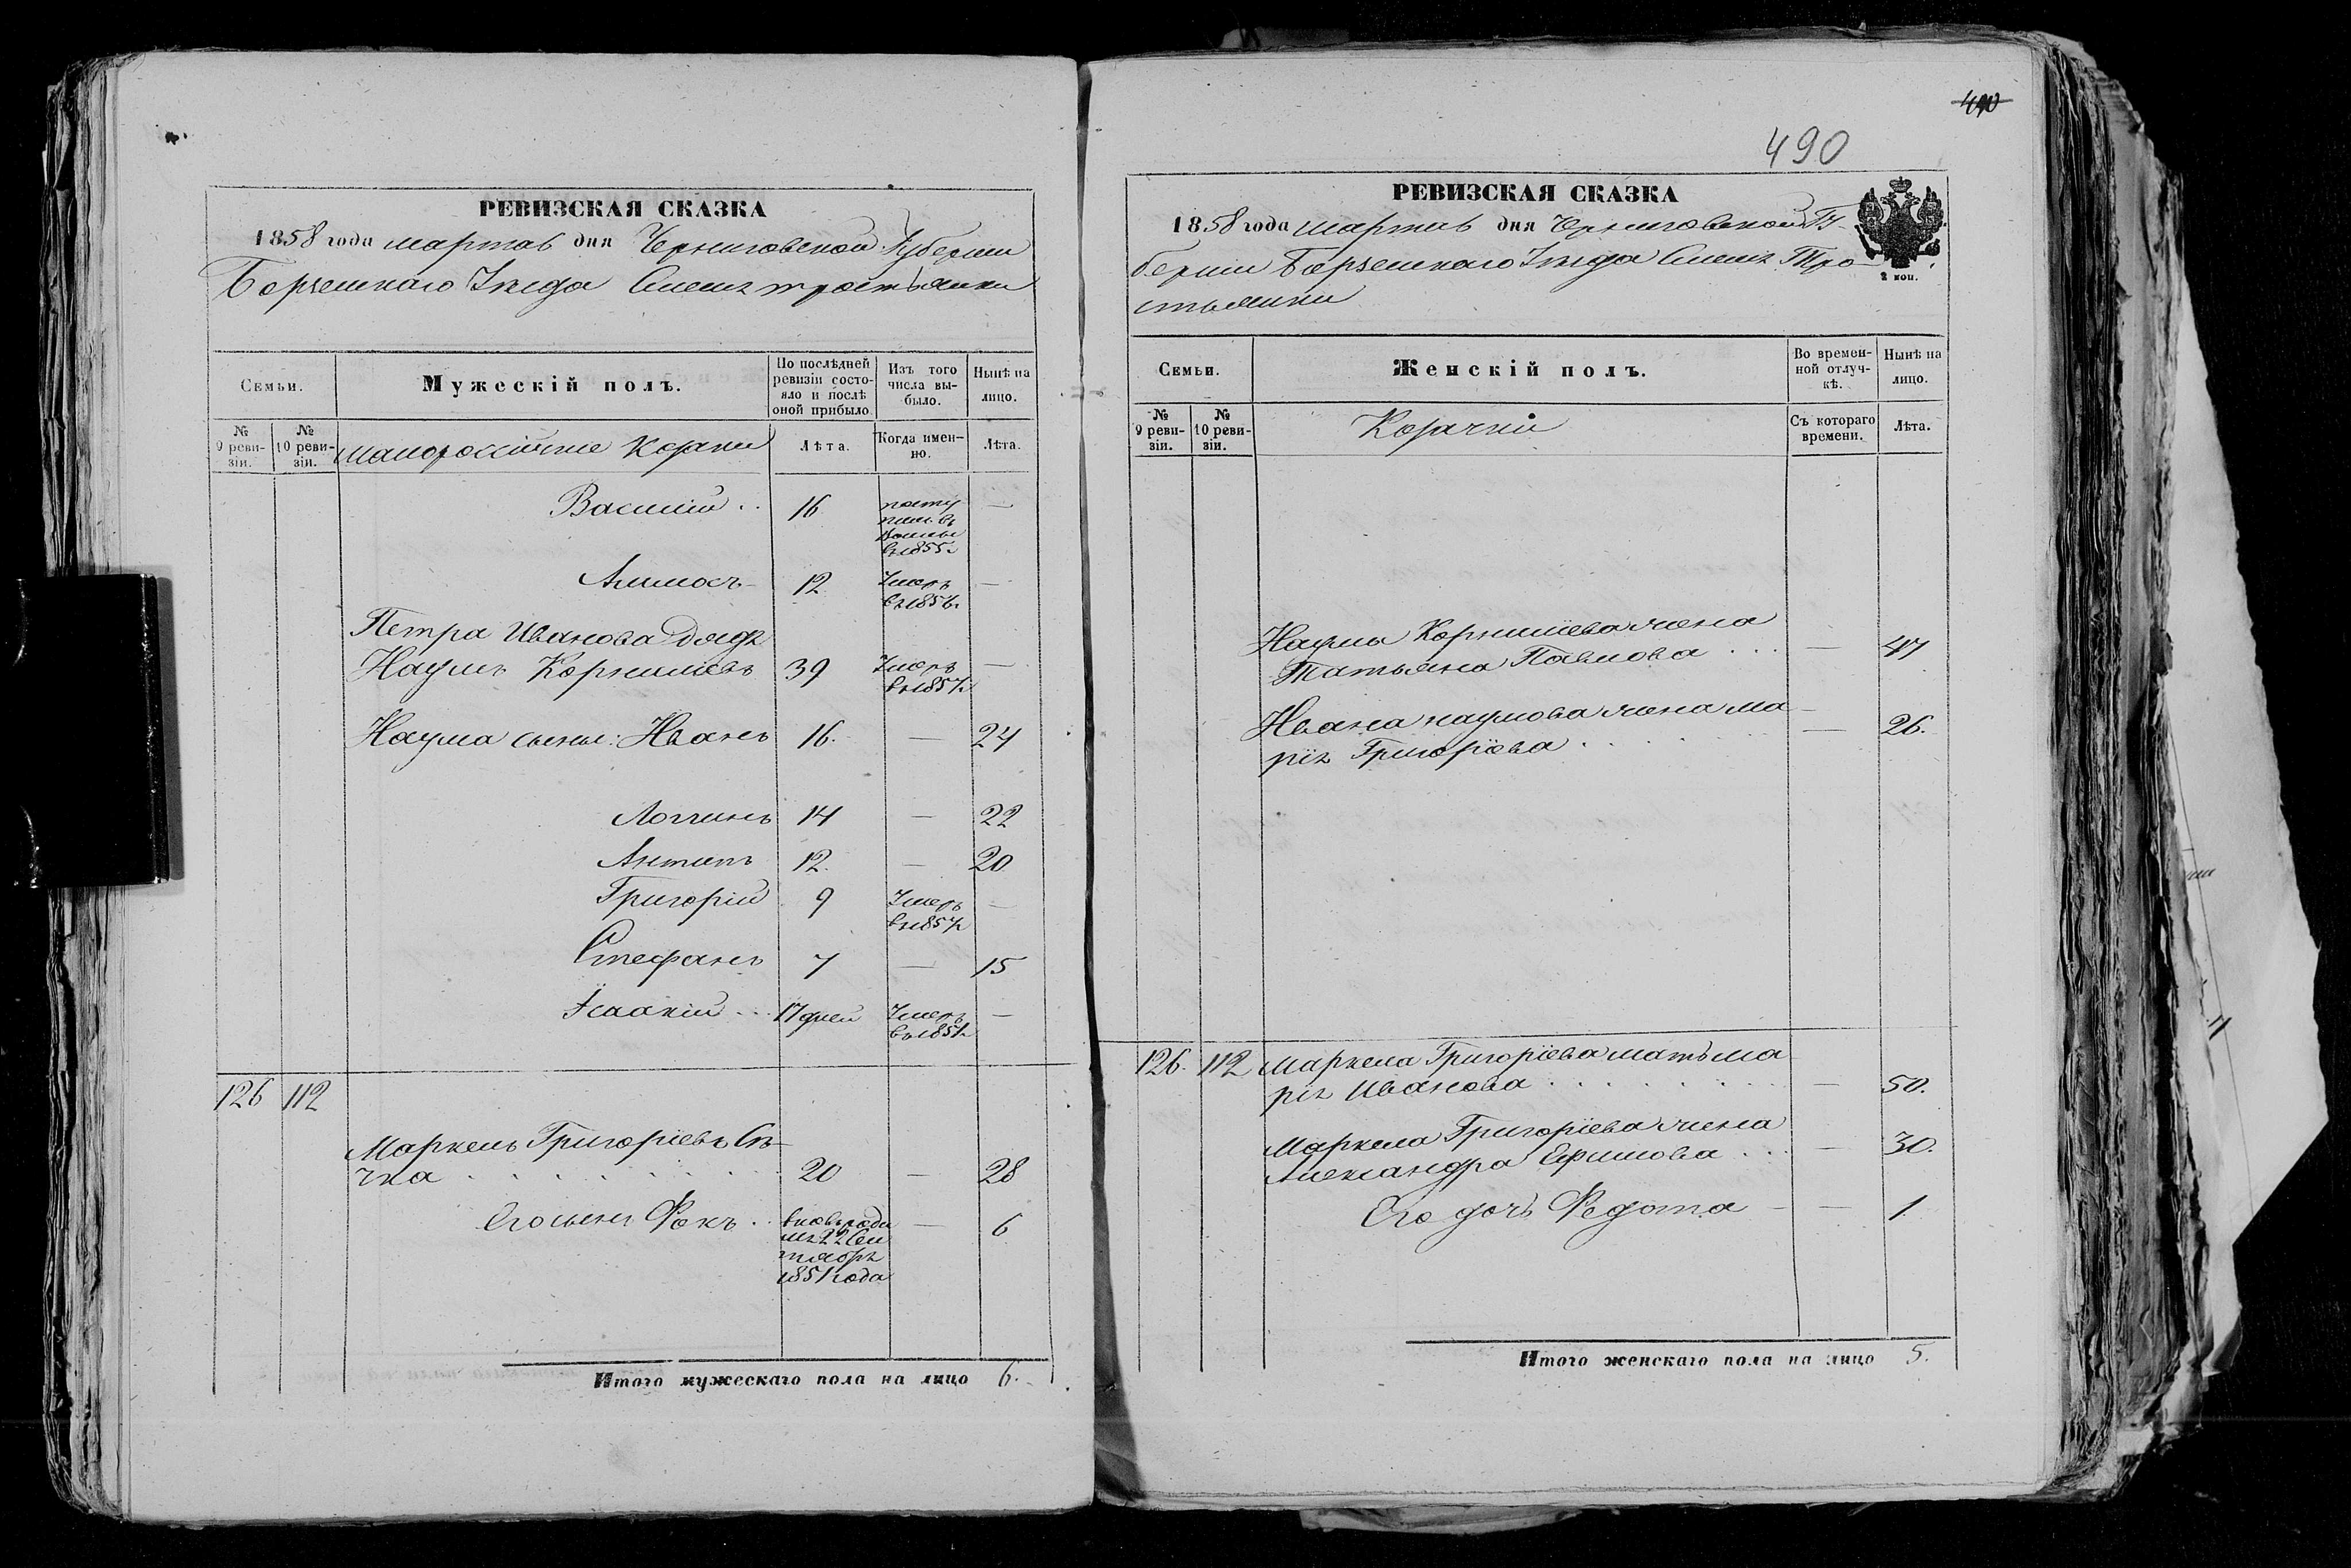 РЕВИЗСКАЯ СКАЗКА
1858 года марта 6 дня Черниговской Губернии
Борзенскаго Уезда Слезъ Тростянки
Семьи.
Мужескій полъ.
По послѣдней ревизіи состояло и послѣ оной прибыло.
Изъ того числа выбыло.
Нынѣ на лицо.
№ 9 ревизіи.
№ 10 ревизіи.
малороссійские козаки
Лѣта.
Когда именно.
Лѣта.
Василій 16 —
въ 1855 г.
12 Умеръ —
Петра Иванова дядя
Наумъ Корнилиевъ 39 Умеръ —
Наума сыны: Иванъ 16. — 24
Логгинъ 14 — 22
Антипъ 12. — 20
Григорій 9 Умеръ —
Стефанъ 7 — 15
Ісаакій 17 дней Умеръ —
126 112
Маркелъ Григоріевъ Сѣ-
чка 20 — 28
Его сынъ Фокъ вновь роди — 6
лъ 22 Сен
тября
1851 года
Итого мужескаго пола на лицо 6.
490
490
РЕВИЗСКАЯ СКАЗКА
1858 года марта 6 дня Черниговской Гу-
берніи Борзенскаго Уезда Слезъ Тро-
стьянки
2 коп.
Семьи.
Женскій полъ.
Во временной отлучкѣ.
Нынѣ на лицо.
№ 9 ревизіи.
№ 10 ревизіи.
Козачки
Съ котораго времени.
Лѣта.
Наума Корниліева жена
Татьяна Павлова — 47
Ивана наумова жена Ма-
рія Григоріева — 26.
126. 112 Маркела Григоріева мать Ма
рія Иванова 50.
Маркела Григоріева жена
Александра Ефимова — 30.
Его дочь Федота — — 1
Итого женскаго пола на лицо 5.